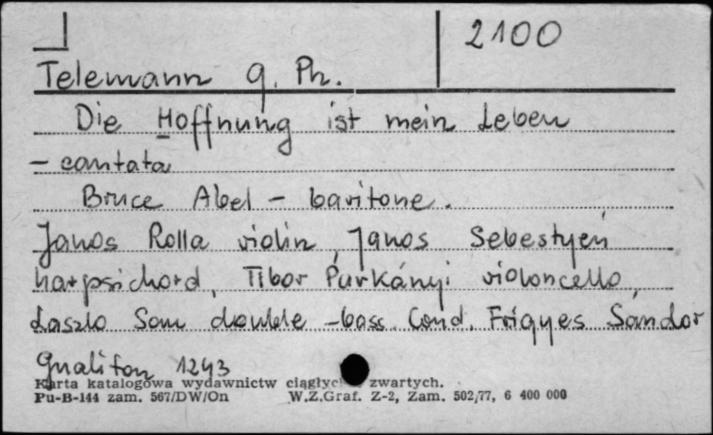 2100
Telemann G. Ph.
Die Hoffnung ist mein Leben
- cantata
Bruce Abel - baritone.
Janos Rolla violin, Janos Sebestyén
harpsichord, Tibor Párkányi violoncello,
Laszlo Som double-bass. Cond. Frigyes Sándor
Qualiton 1243
Karta katalogowa wydawnictw ciągłych zwartych.
Pu-B-144 zam. 567/DW/On W.Z.Graf. Z-2, Zam. 502/77, 6 400 000